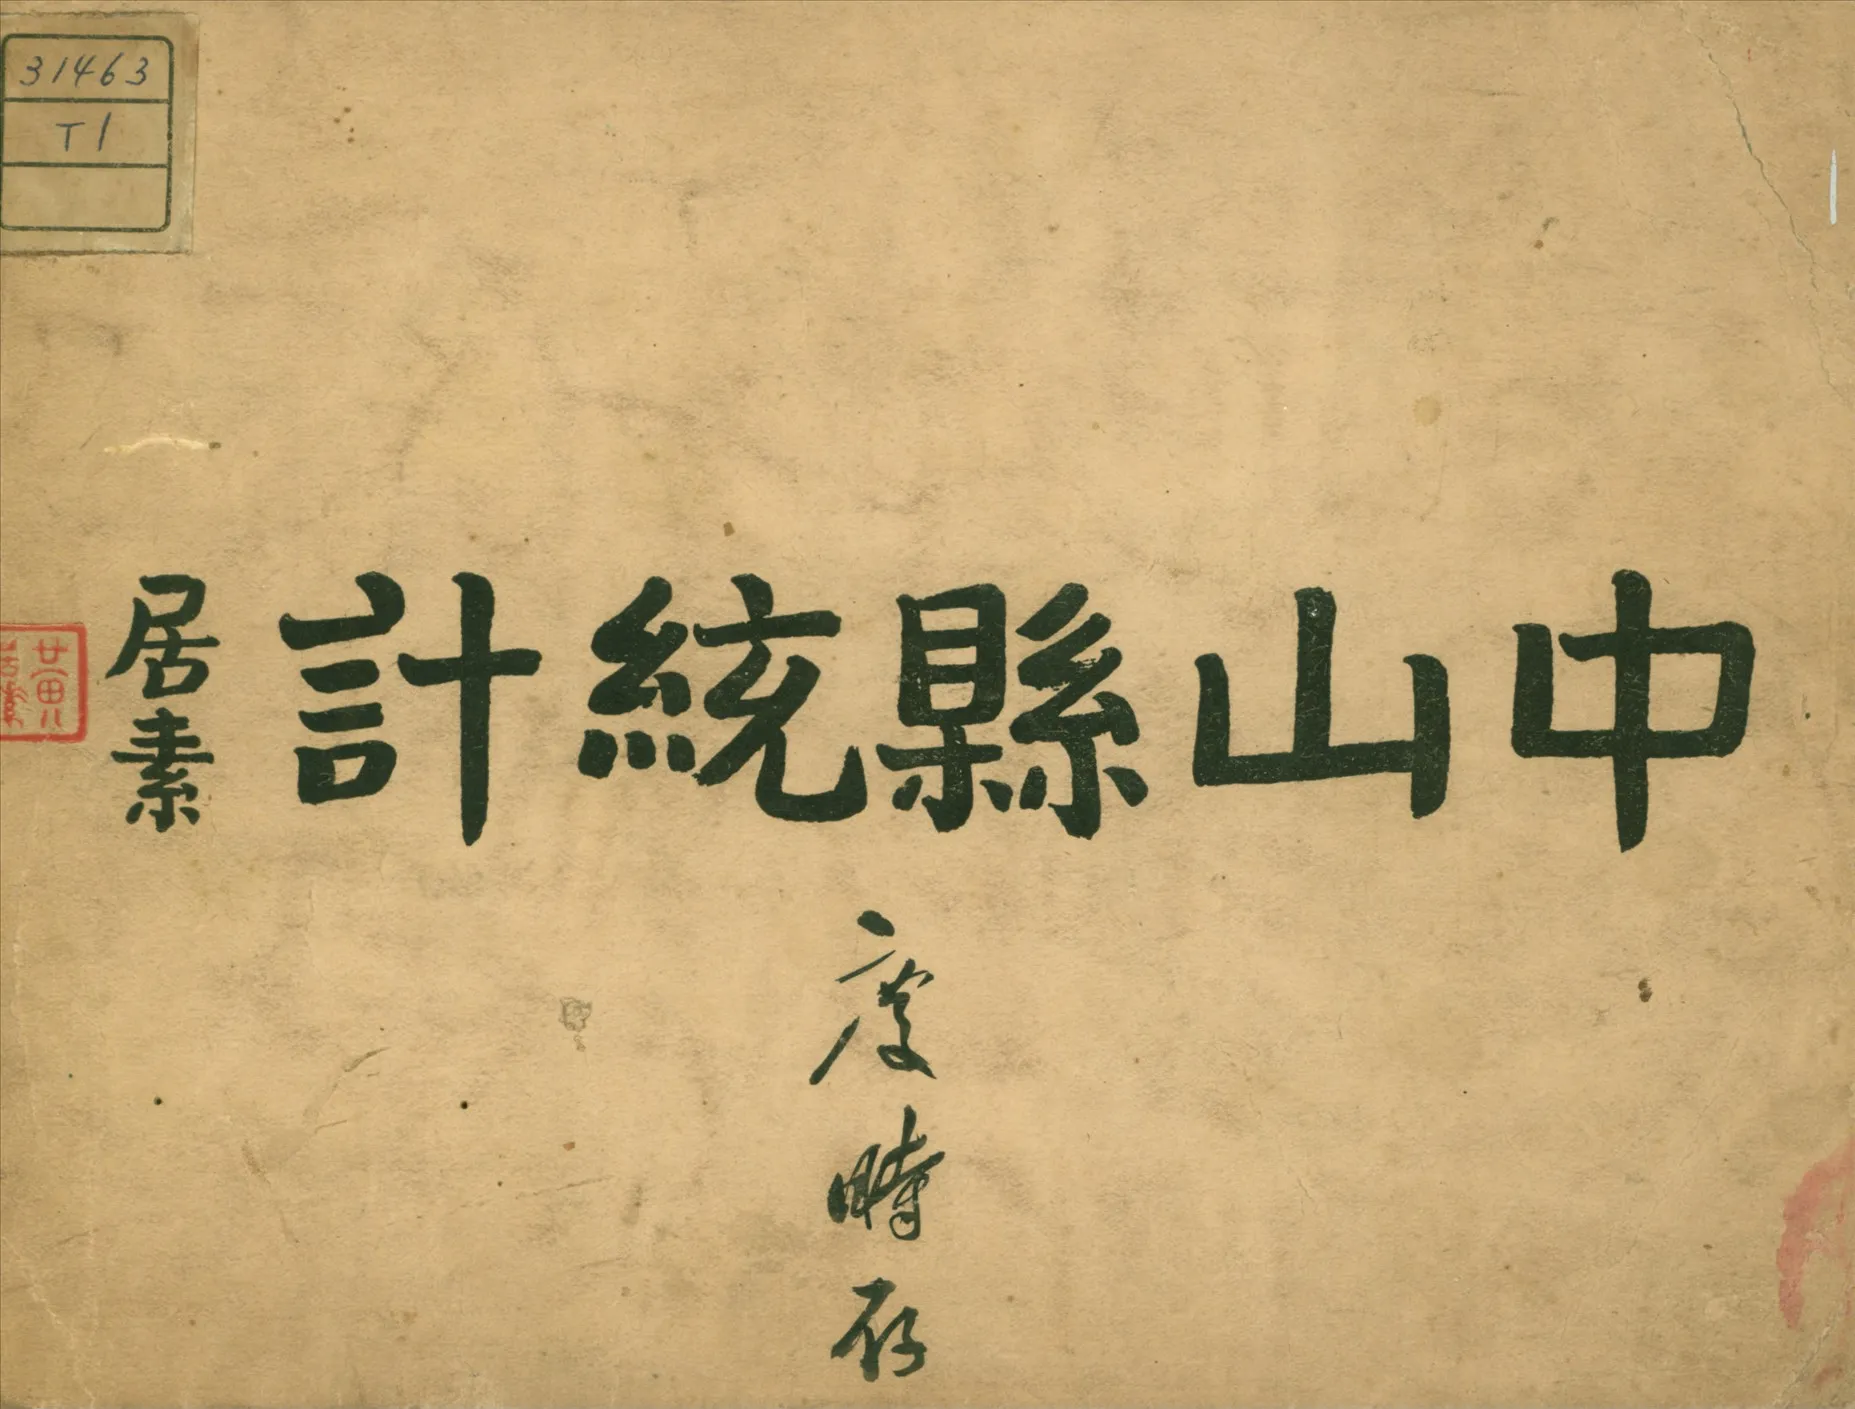 31463
T1
中山縣統計
居素
度時存